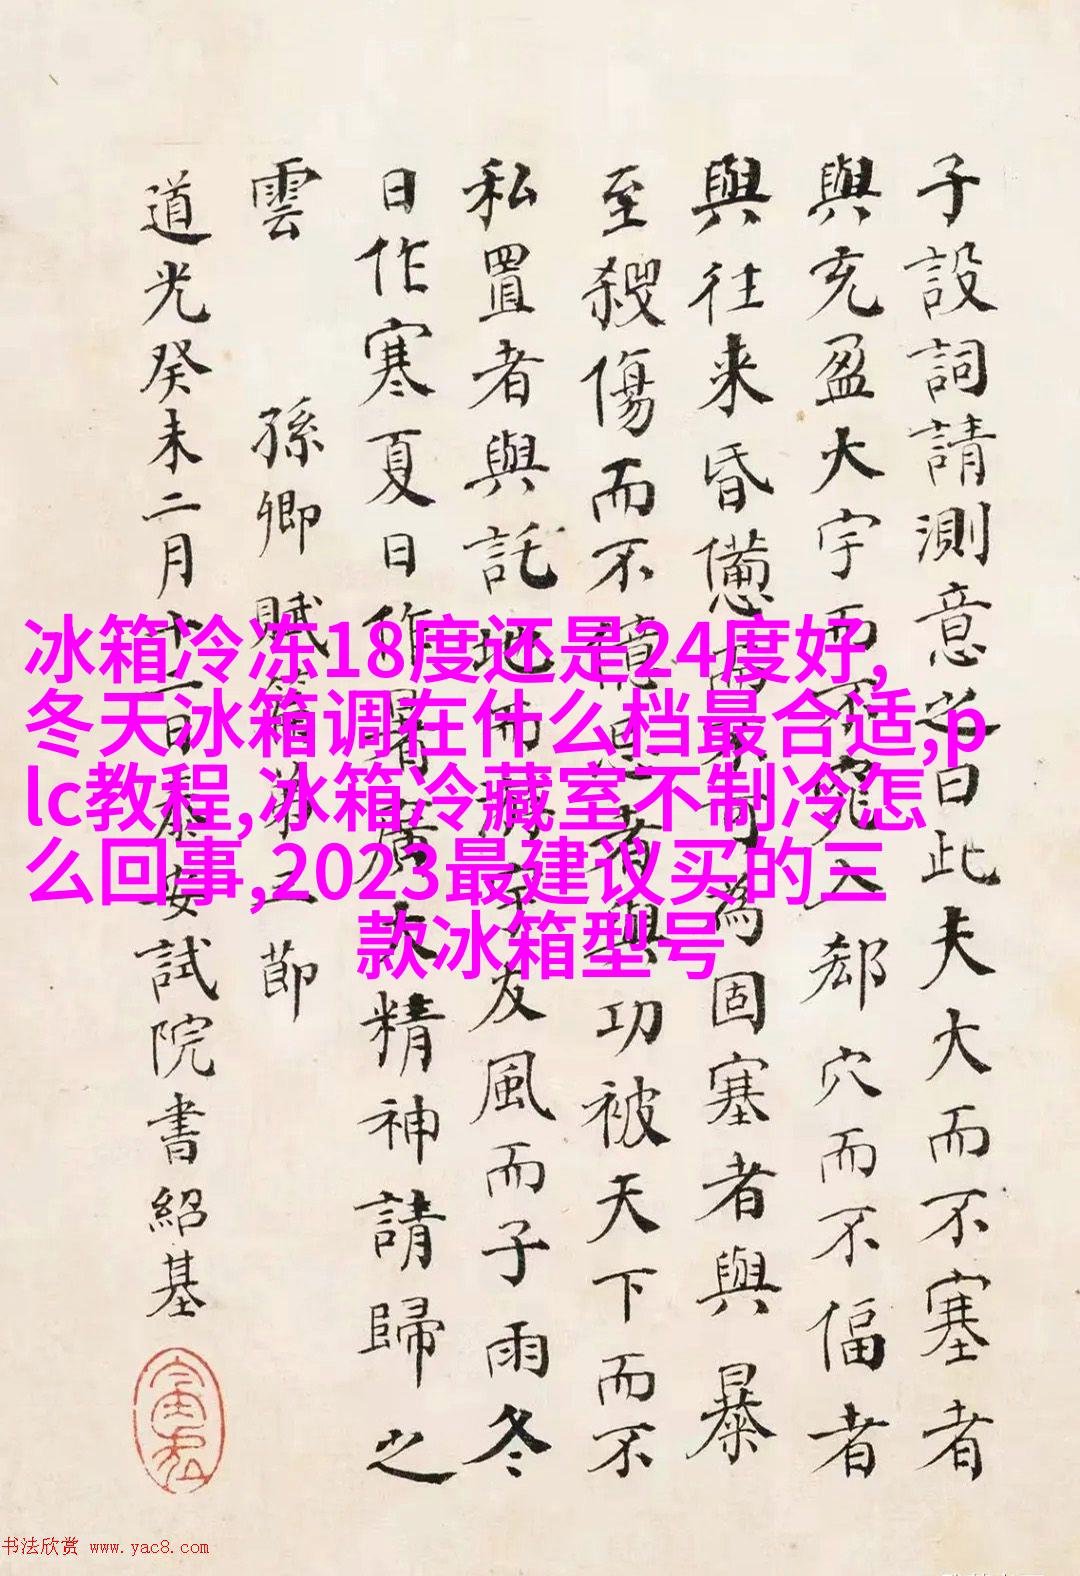 子設詞請測意之曰此夫大而不塞者
與充盈大宇而不窕入郄穴而不偪者
與往来昏憊而不可為固塞者與暴
至殺傷而不億忌者與功被天下而不
私置者與託地而游宇友風而子雨冬
日作寒夏日作暑廣大精神請歸之
雲 孫卿賦篇弟節
道光癸未二月十一日泰安試院書紹基
冰箱冷冻18度还是24度好,
冬天冰箱调在什么档最合适,p
lc教程,冰箱冷藏室不制冷怎
么回事,2023最建议买的三
款冰箱型号
书法欣赏 www.yac8.com